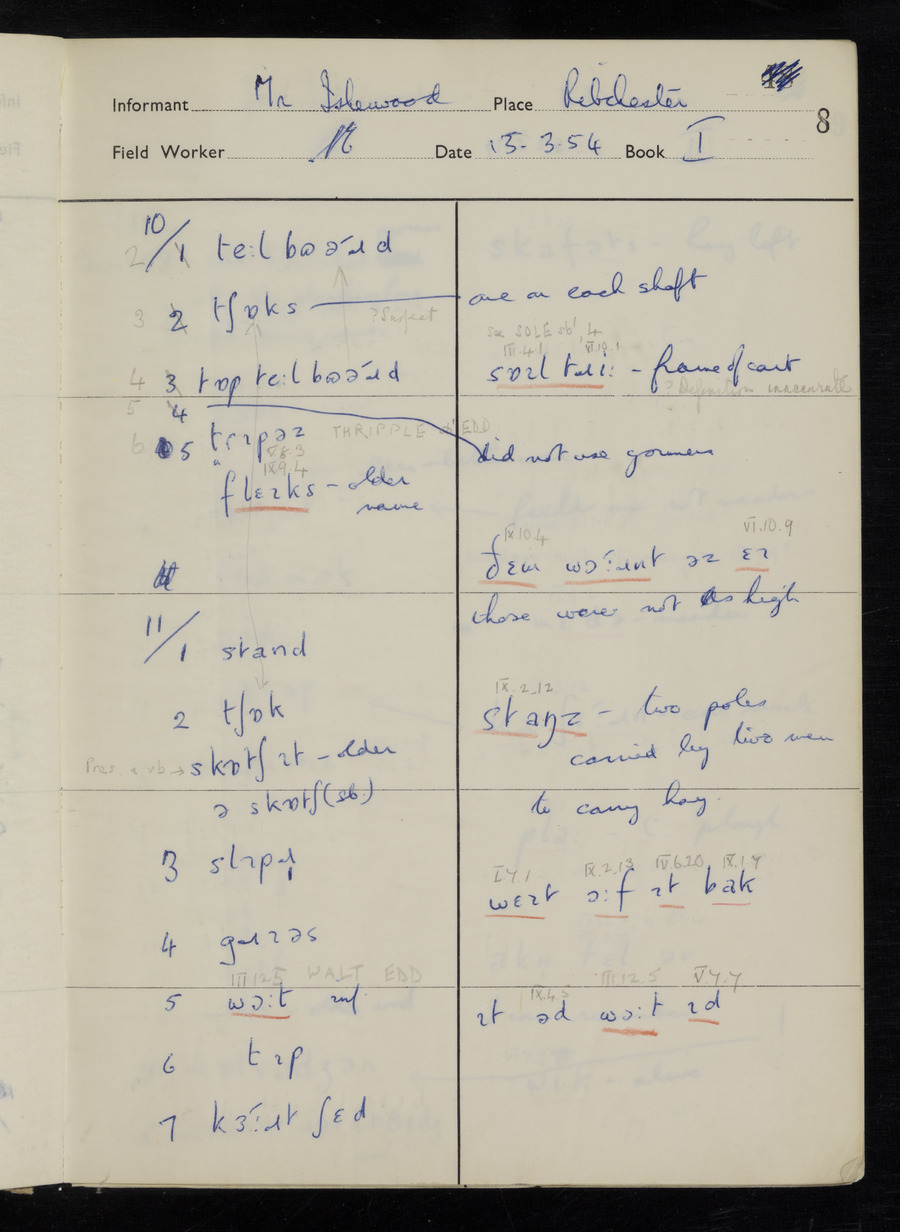 Informant Mr Place Ribchester
8
Field Worker Date 15.3.54 Book I
10/1 te:l bɷə́ɹd
2 tʃɒks — one on each shaft
? Suspect
see SOLE sb¹, 4
III.4.1 VI.10.1
3 tɒp te:l bɷə́ɹd
sɒɪl tɹɪi: - frame of cart
? Definition inaccurate
4 did not use gormers
THRIPPLE sb¹ EDD
5
V.8.3
IX.9.4
flɛɪks - older
name
IX.10.4 VI.10.9
ðɛɯ wɔ́:ɹnt əz ɛɪ
those were not as high
11/1 stand
IX.2.12
2 tʃɒk
staŋz - two poles
carried by two men
to carry hay
Pres. a vb → skɒtʃ ɪt - older
ə skɒtʃ (sb.)
3 slɪpəɹ
I.7.1 IX.2.13 IV.6.20 IX.1.7
wɛɪt ə:f ɪt bak
4
III.12.5 WALT EDD
5 wɔ:t inf.
IX.4.5 III.12.5 V.7.7
ɪt əd wɔ:t ɪd
6 tɪp
7 kɜ́:ɹt ʃɛd